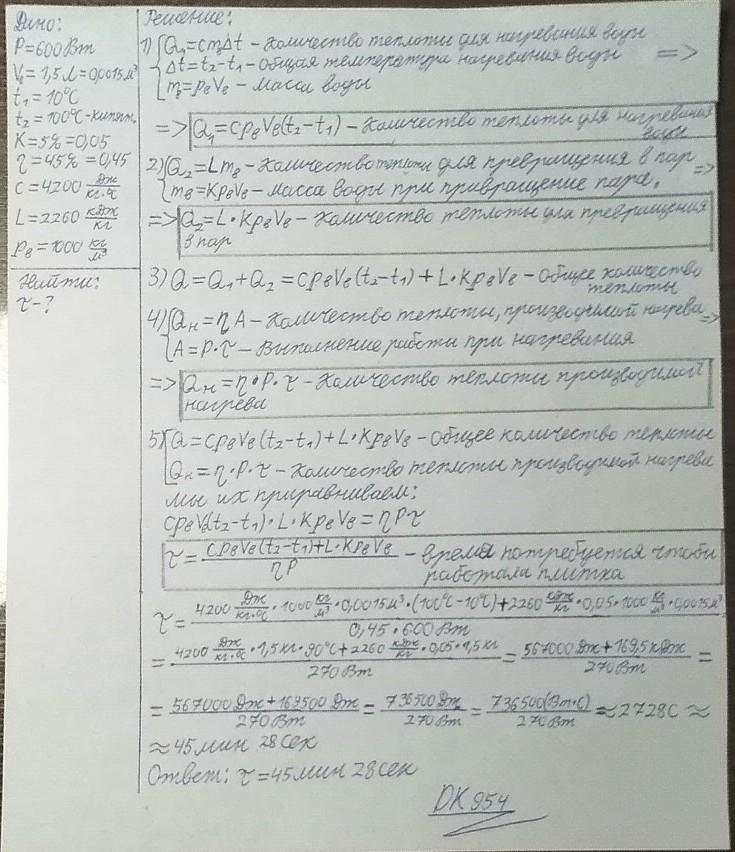 Дано:
P=600Вт
Vв=1,5л=0,0015м³
t₁=10°C
t₂=100°C-кипят.
K=5%=0,05
η=45%=0,45
c=4200 Дж/кг·°C
L=2260 кДж/кг
ρв=1000 кг/м³
Найти:
τ-?
Решение:
1) Q₁=cmвΔt – Количество теплоты для нагревания воды
Δt=t₂-t₁ – общая температура нагревания воды =>
mв=ρвVв – масса воды
=> Q₁=cρвVв(t₂-t₁) – Количество теплоты для нагревания
воды
2) Q₂=Lmв – Количество теплоты для превращения в пар =>
mв=KρвVв – масса воды при привращение пара.
=> Q₂=L·KρвVв – Количество теплоты для превращения
в пар
3) Q=Q₁+Q₂=cρвVв(t₂-t₁)+L·KρвVв – Общее количество
теплоты
4) Qн=ηA – Количество теплоты, производимой нагрева =>
A=P·τ – Выполнение работы при нагревания
=> Qн=η·P·τ – Количество теплоты производимой
нагрева
5) Q=cρвVв(t₂-t₁)+L·KρвVв – Общее количество теплоты
Qн=η·P·τ – Количество теплоты производимой нагреви
мы их приравниваем:
cρвVв(t₂-t₁)·L·KρвVв=ηPτ
τ=cρвVв(t₂-t₁)+L·KρвVв/ηP – время потребуется чтобы
работала плитка
τ=4200 Дж/кг·°C·1000 кг/м³·0,0015м³·(100°C-10°C)+2260 кДж/кг·0,05·1000 кг/м³·0,0015м³/0,45·600Вт
=4200 Дж/кг·°C·1,5кг·90°C+2260 кДж/кг·0,05·1,5кг/270Вт=567000Дж+169,5кДж/270Вт=
=567000Дж+169500Дж/270Вт=736500Дж/270Вт=736500(Вт·с)/270Вт≈2728с≈
≈45мин 28сек
Ответ: τ=45мин 28сек
DK954